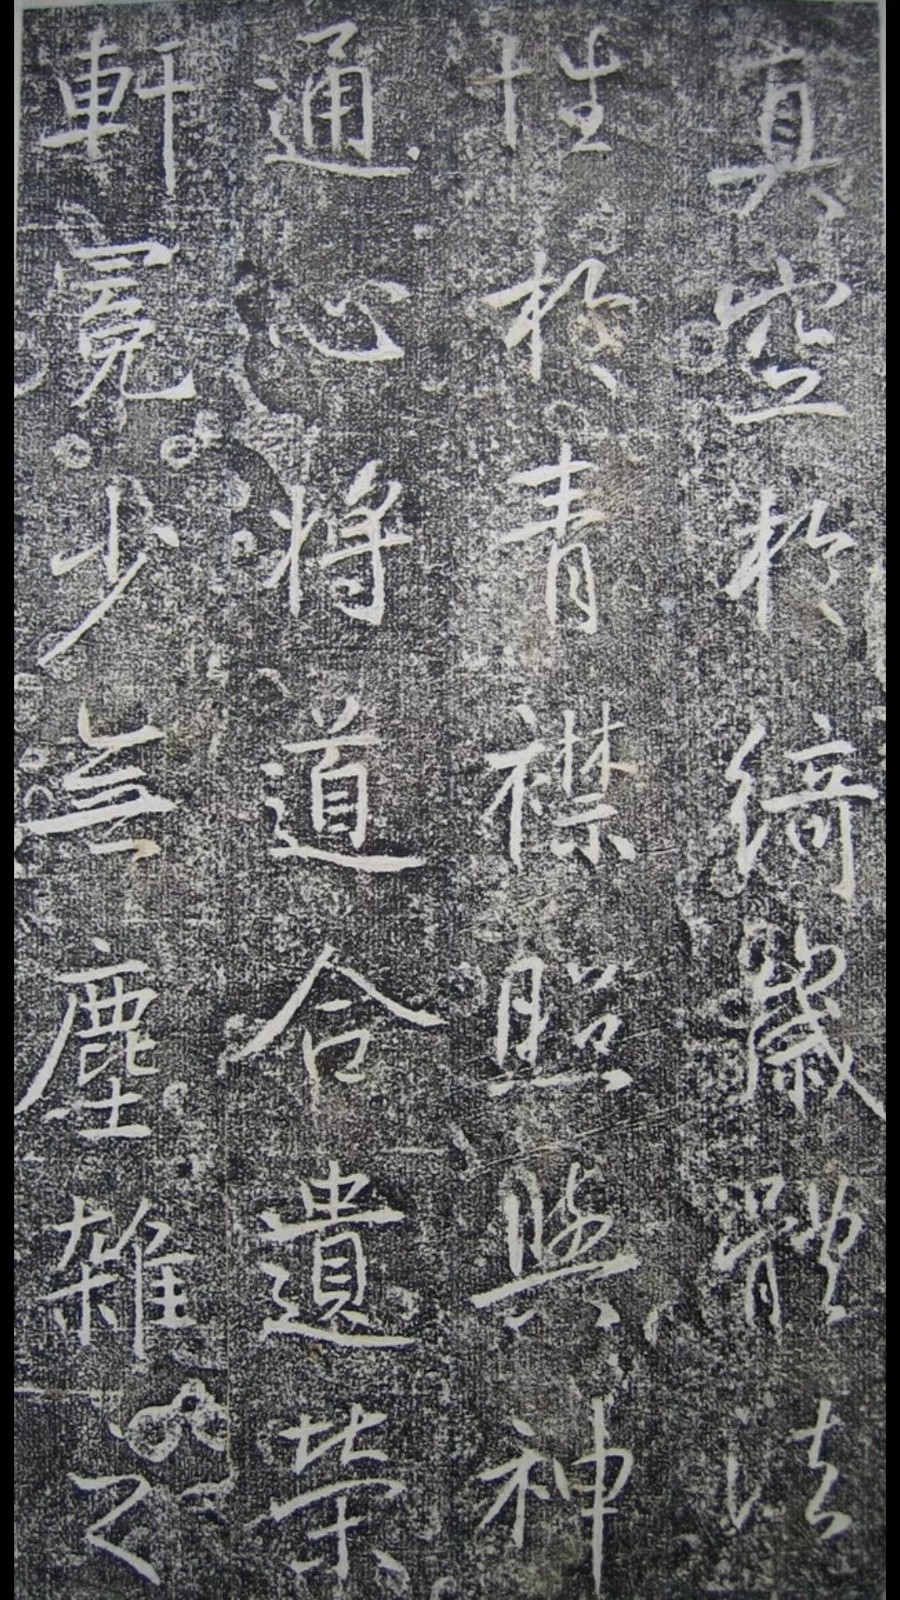 真空於綺歲體法
性於青襟照與神
通心將道合遺榮
軒冕少無塵雜之